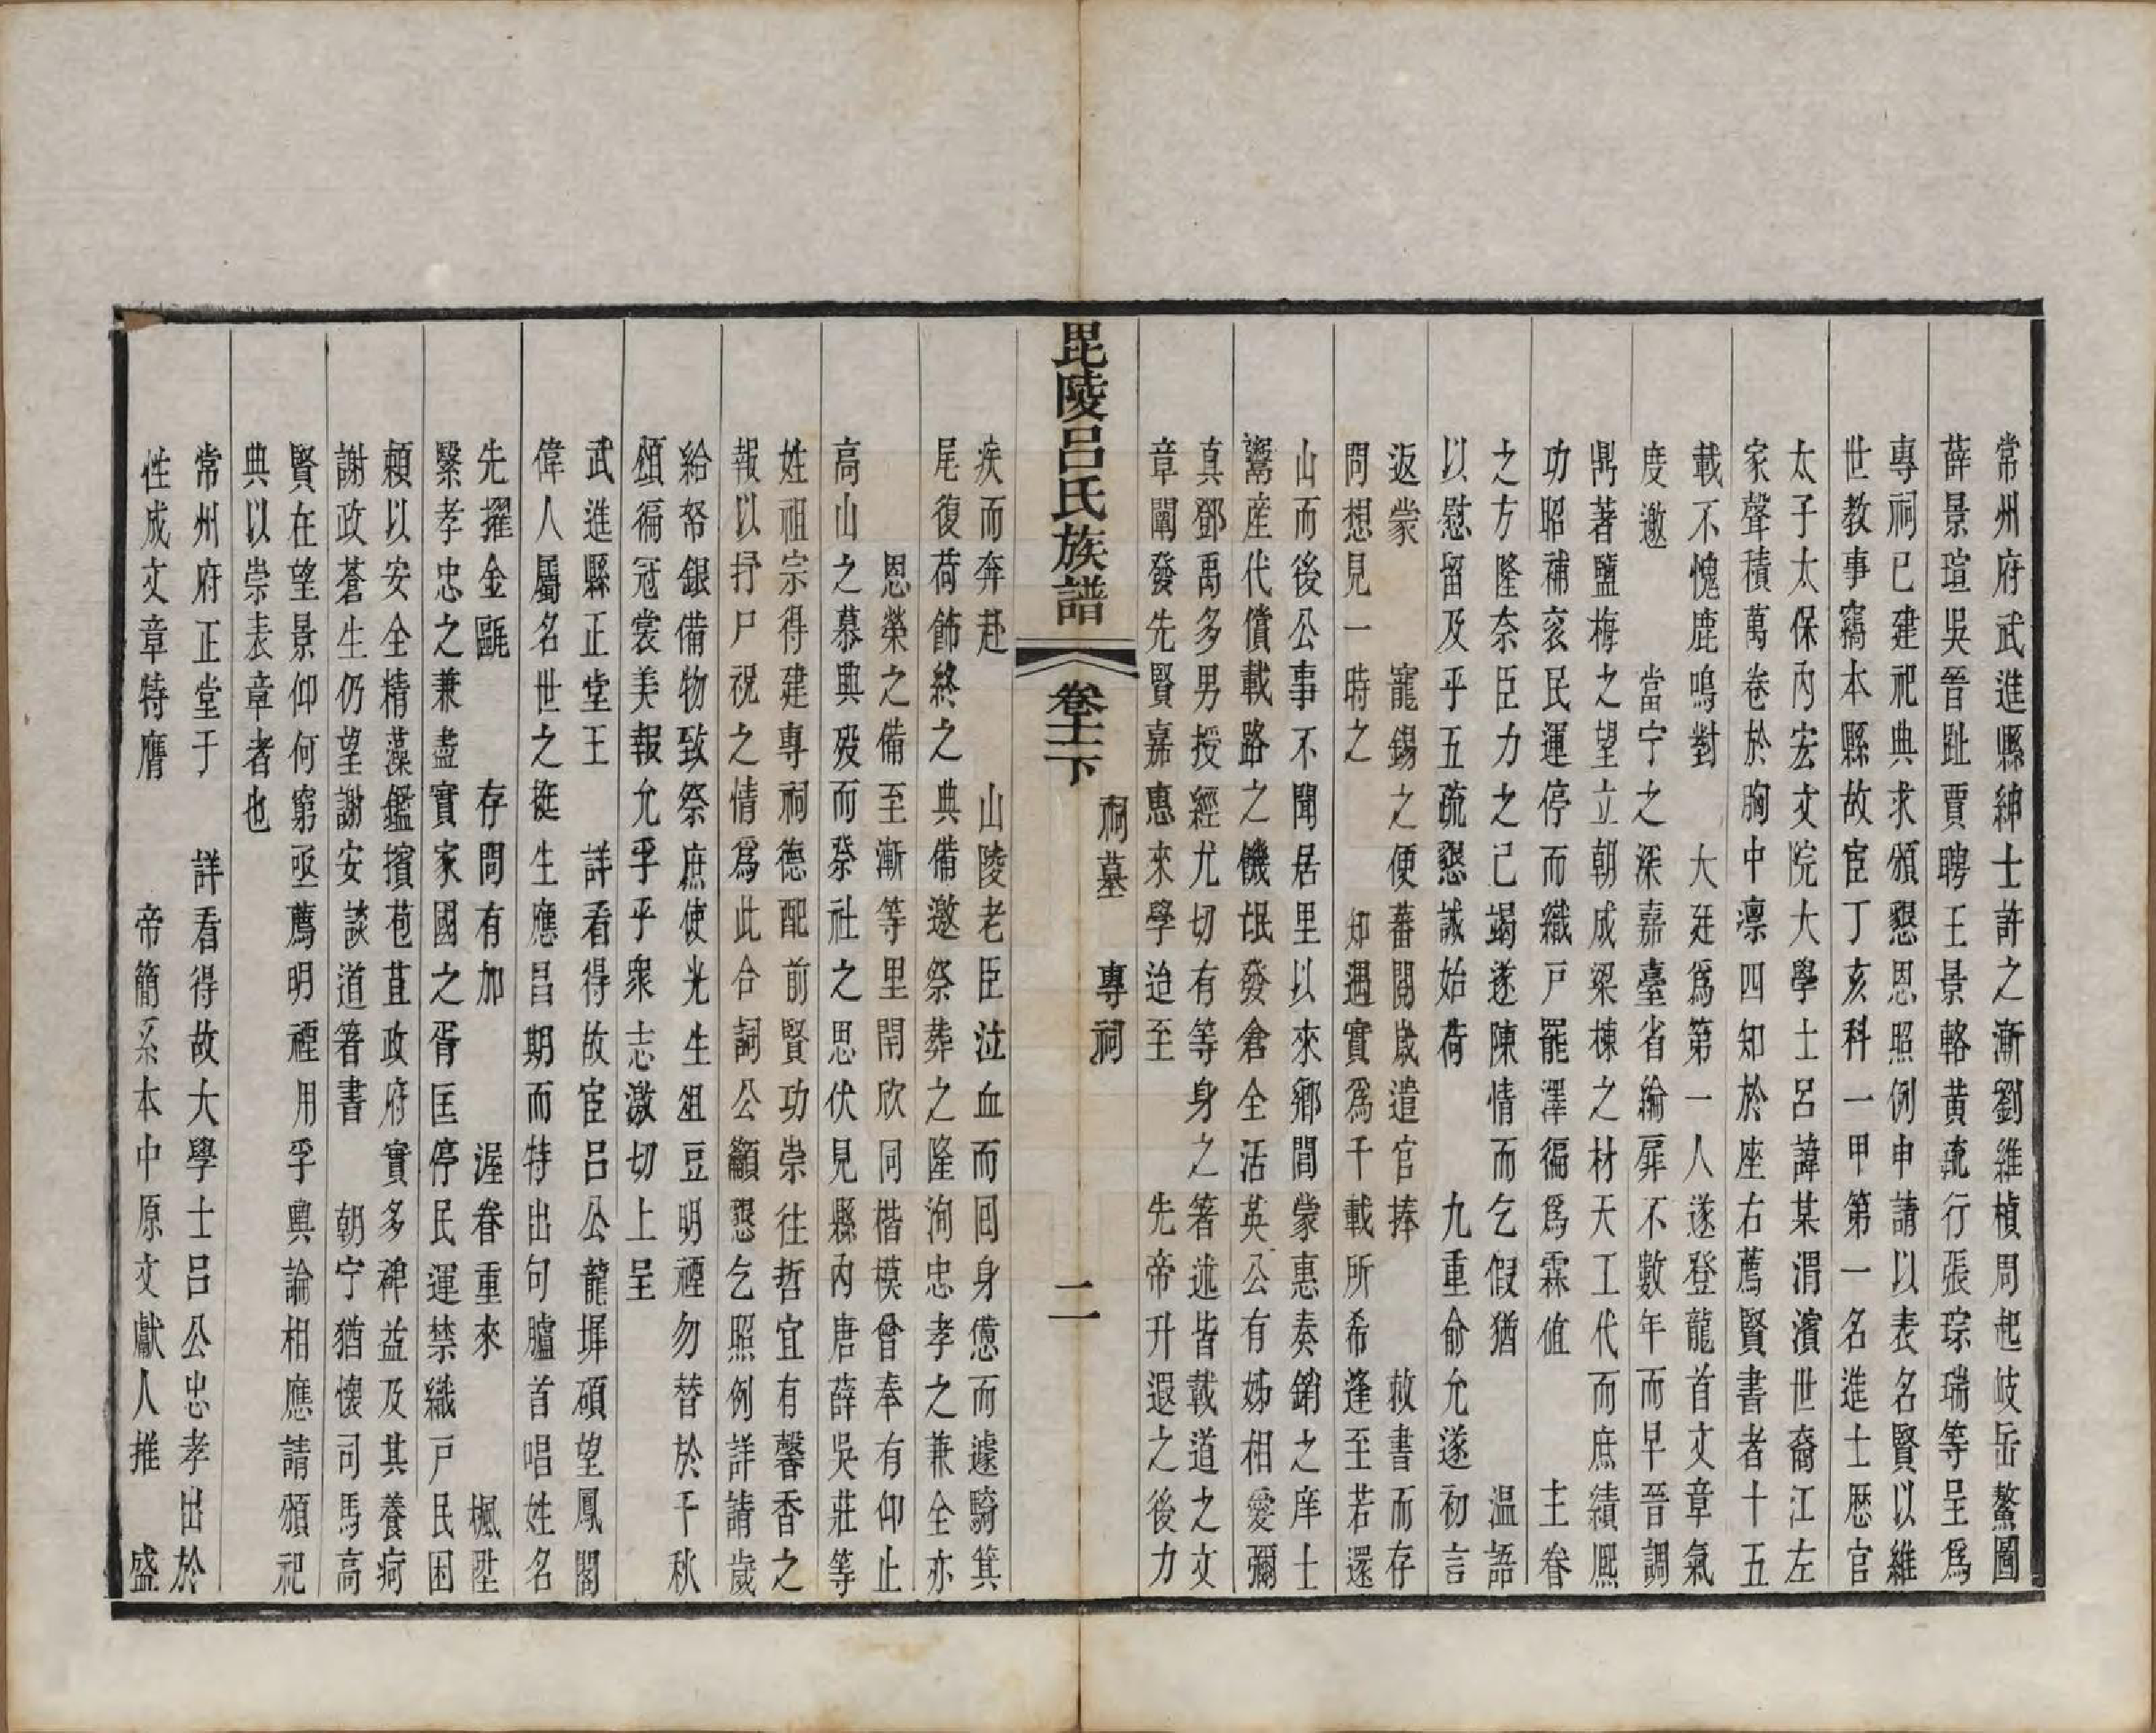 常州府武進縣紳士許之漸劉維楨周起岐岳鰲圖
薛景瑄吳晉趾賈聘王景輅黃毓行張琮瑞等呈爲
專祠已建祀典求頒懇恩照例申請以表名賢以維
世教事竊本縣故宦丁亥科一甲第一名進士歷官
太子太保內宏文院大學士呂諱某渭濱世裔江左
家聲積萬卷於胸中凛四知於座右薦賢書者十五
載不愧鹿鳴對　大廷爲第一人遂登龍首文章氣
度邀　當宁之深嘉臺省綸扉不數年而早晉調
鼎著鹽梅之望立朝成梁棟之材天工代而庶績熙
功昭補衮民運停而織戶罷澤徧爲霖値　主眷
之方隆奈臣力之已竭遂陳情而乞假猶　温語
以慰留及乎五疏懇誠始荷　九重俞允遂初言
返蒙　寵錫之便蕃閱歲遣官捧　敕書而存
問想見一時之　知遇實爲千載所希逢至若還
山而後公事不聞居里以來鄉閭蒙惠奏銷之庠士
鬻產代償載路之饑氓發倉全活英公有姊相愛彌
真鄧禹多男授經尤切有等身之箸述皆載道之文
章闡發先賢嘉惠來學迨至　先帝升遐之後力
毘陵呂氏族譜　卷十二下　祠墓　專祠　二
疾而奔赴　山陵老臣泣血而回身憊而遽騎箕
尾復荷飾終之典備邀祭葬之隆洵忠孝之兼全亦
恩榮之備至漸等里閈欣同楷模曾奉有仰止
高山之慕典歿而祭社之思伏見縣內唐薛吳莊等
姓祖宗得建專祠德配前賢功崇往哲宜有馨香之
報以抒尸祝之情爲此合詞公籲懇乞照例詳請歲
給帑銀備物致祭庶使光生俎豆明禋勿替於千秋
頒徧冠裳美報允孚乎衆志激切上呈
武進縣正堂王　詳看得故宦呂公龍墀碩望鳳閣
偉人屬名世之挺生應昌期而特出句臚首唱姓名
先擢金甌　存問有加　渥眷重來　楓陛
繄孝忠之兼盡實家國之胥匡停民運禁織戶民困
頼以安全精藻鑑擯苞苴政府實多裨益及其養疴
謝政蒼生仍望謝安談道箸書　朝宁猶懷司馬高
賢在望景仰何窮亟薦明禋用孚輿論相應請頒祀
典以崇表章者也
常州府正堂于　詳看得故大學士呂公忠孝出於
性成文章特膺　帝簡系本中原文獻人推　盛